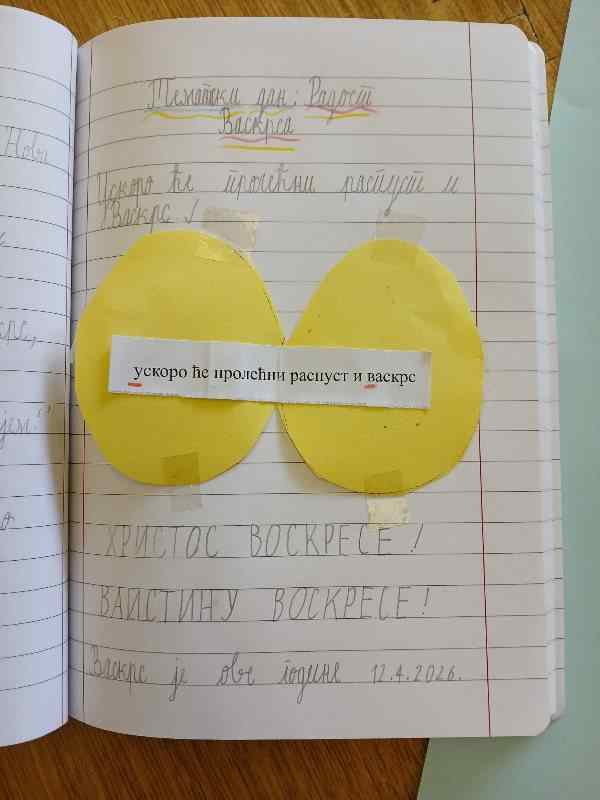 Нова
Тематски дан: Радост
Васкрса
Ускоро ће пролећни распуст и
Васкрс ✓
ускоро ће пролећни распуст и васкрс
ХРИСТОС ВОСКРЕСЕ!
ВАИСТИНУ ВОСКРЕСЕ!
Васкрс је ове године 12.4.2026.